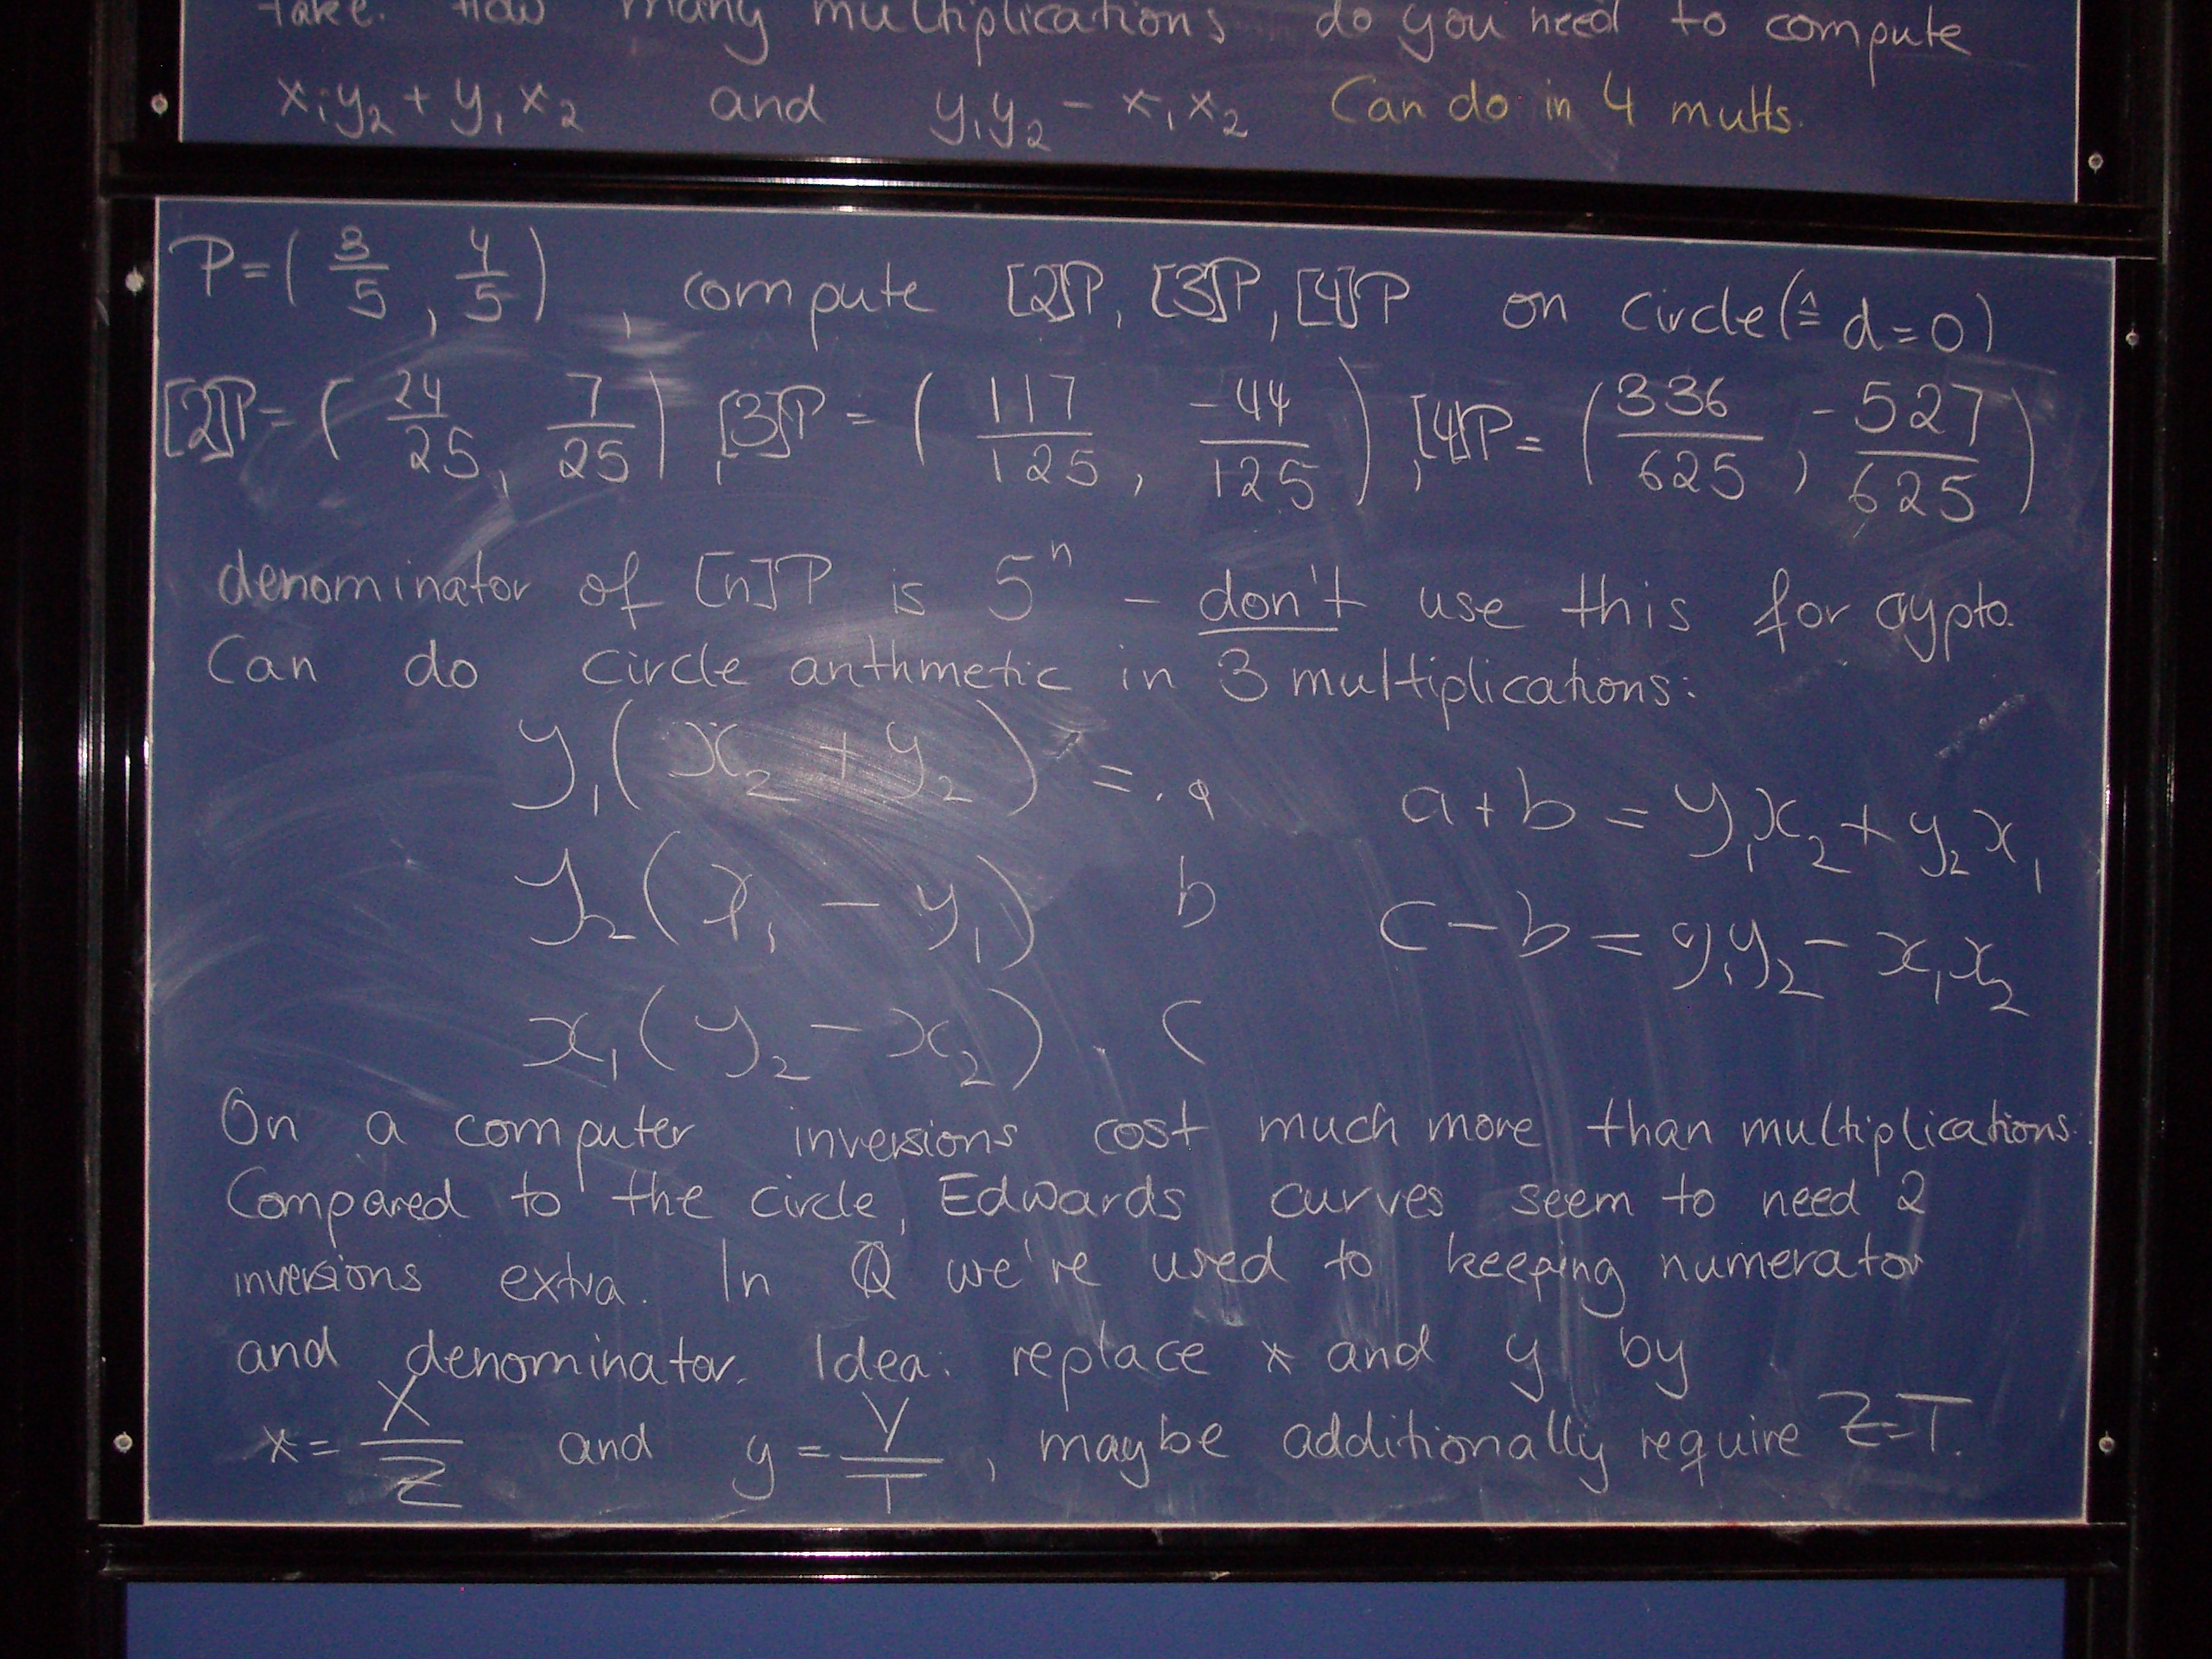 take. How many multiplications do you need to compute
x₁y₂ + y₁x₂ and y₁y₂ - x₁x₂ Can do in 4 mults.
P = (3/5, 4/5), compute [2]P, [3]P, [4]P on circle (≙ d=0)
[2]P = (24/25, 7/25), [3]P = (117/125, -44/125), [4]P = (336/625, -527/625)
denominator of [n]P is 5ⁿ - don't use this for crypto.
Can do circle arithmetic in 3 multiplications:
y₁(x₂ + y₂) = a a+b = y₁x₂ + y₂x₁
y₂(x₁ - y₁) b c-b = y₁y₂ - x₁x₂
x₁(y₂ - x₂) c
On a computer inversions cost much more than multiplications.
Compared to the circle, Edwards curves seem to need 2
inversions extra. In Q we're used to keeping numerator
and denominator. Idea: replace x and y by
x = X/Z and y = Y/T, maybe additionally require Z=T.